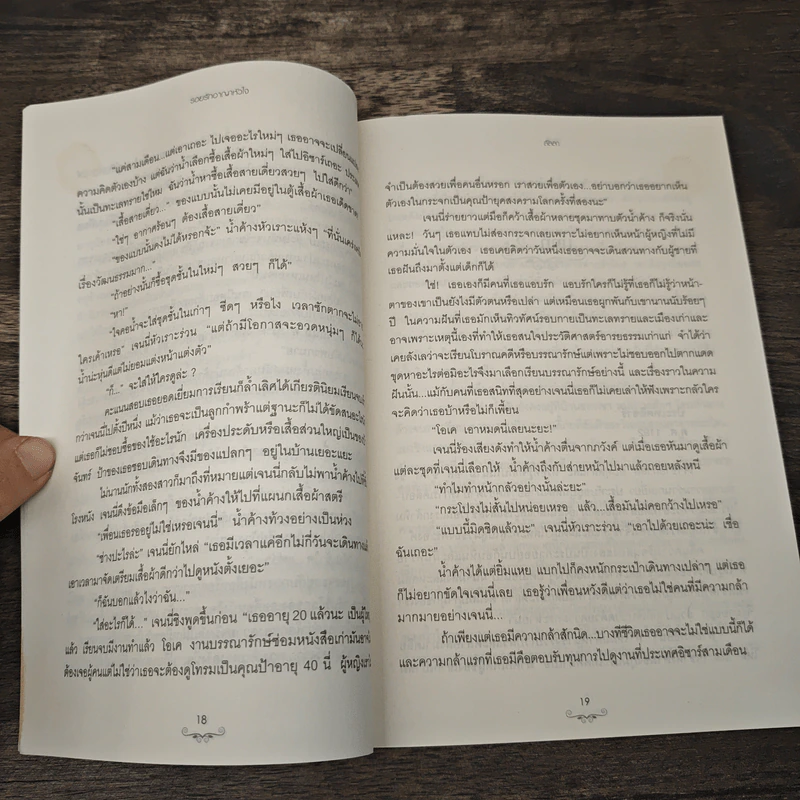 รอยรักอาณาหัวใจ
"แค่สามเดือน...แต่เอาเถอะ ไปเจออะไรใหม่ๆ เธออาจจะเปลี่ยนแปลง
ความคิดตัวเองบ้าง แต่ฉันว่าน้ำเลือกซื้อเสื้อผ้าใหม่ๆ ใส่ไปอิซาร์เถอะ
นั้นเป็นทะเลทรายใช่ไหม ฉันว่าน้ำหาซื้อเสื้อสายเดี่ยวสวยๆ ไปใส่ดีกว่า"
"เสื้อสายเดี่ยว..." ของแบบนั้นไม่เคยมีอยู่ในตู้เสื้อผ้าเธอเด็ดขาด
"ใช่ๆ อากาศร้อนๆ ต้องเสื้อสายเดี่ยว"
"ของแบบนั้นคงไม่ได้หรอกจ้ะ" น้ำค้างหัวเราะแห้งๆ "ที่นั่นเคร่งครัด
เรื่องวัฒนธรรมมาก..."
"ถ้าอย่างนั้นก็ซื้อชุดชั้นในใหม่ๆ สวยๆ ก็ได้"
"หา!"
"ใจคอน้ำจะใส่ชุดชั้นในเก่าๆ ซีดๆ หรือไง เวลาซักตากจะไม่อาย
ใครเค้าเหรอ" เจนนี่หัวเราะร่วน "แต่ถ้ามีโอกาสจะอวดหนุ่มๆ ก็ได้
น้ำน่ะหุ่นดีแต่ไม่ยอมแต่งหน้าแต่งตัว"
"ก็..." จะใส่ให้ใครดูล่ะ ?
คะแนนสอบเธอยอดเยี่ยมการเรียนก็ล้ำเลิศได้เกียรตินิยมเรียนจบเร็ว
กว่าเจนนี่ไปตั้งปีหนึ่ง แม้ว่าเธอจะเป็นลูกกำพร้าแต่ฐานะก็ไม่ได้ขัดสนอะไร
แต่เธอก็ไม่ชอบซื้อของใช้อะไรนัก เครื่องประดับหรือเสื้อส่วนใหญ่เป็นของ
จันทร์ ป้าของเธอชอบเดินทางจึงมีของแปลกๆ อยู่ในบ้านเยอะแยะ
ไม่นานนักทั้งสองสาวก็มาถึงที่หมายแต่เจนนี่กลับไม่พาน้ำค้างไปที่
โรงหนัง เจนนี่ดึงข้อมือเล็กๆ ของน้ำค้างให้ไปที่แผนกเสื้อผ้าสตรี
"เพื่อนเธอรออยู่ไม่ใช่เหรอเจนนี่" น้ำค้างท้วงอย่างเป็นห่วง
"ช่างปะไรล่ะ" เจนนี่ยักไหล่ "เธอมีเวลาแค่อีกไม่กี่วันจะเดินทางแล้ว
เอาเวลามาจัดเตรียมเสื้อผ้าดีกว่าไปดูหนังตั้งเยอะ"
"ก็ฉันบอกแล้วไงว่าฉัน..."
"ใส่อะไรก็ได้..." เจนนี่ชิงพูดขึ้นก่อน "เธออายุ 20 แล้วนะ เป็นผู้ใหญ่
แล้ว เรียนจบมีงานทำแล้ว โอเค งานบรรณารักษ์ซ่อมหนังสือเก่ามันอาจไม่
ต้องเจอผู้คนแต่ไม่ใช่ว่าเธอจะต้องดูโทรมเป็นคุณป้าอายุ 40 นี่ ผู้หญิงเรา
18
จำเป็นต้องสวยเพื่อคนอื่นหรอก เราสวยเพื่อตัวเอง...อย่าบอกว่าเธออยากเห็น
ตัวเองในกระจกเป็นคุณป้ายุคสงครามโลกครั้งที่สองนะ"
เจนนี่ร่ายยาวแต่มือก็คว้าเสื้อผ้าหลายชุดมาทาบตัวน้ำค้าง ก็จริงนั่น
แหละ! วันๆ เธอแทบไม่ส่องกระจกเลยเพราะไม่อยากเห็นหน้าผู้หญิงที่ไม่มี
ความมั่นใจในตัวเอง เธอเคยคิดว่าวันหนึ่งเธออาจจะเดินสวนทางกับผู้ชายที่
เธอฝันถึงมาตั้งแต่เด็กก็ได้
ใช่! เธอเองก็มีคนที่เธอแอบรัก แอบรักใครก็ไม่รู้ที่เธอก็ไม่รู้ว่าหน้า-
ตาของเขาเป็นยังไงมีตัวตนหรือเปล่า แต่เหมือนเธอผูกพันกับเขานานนับร้อยๆ
ปี ในความฝันที่เธอมักเห็นทิวทัศน์รอบกายเป็นทะเลทรายและเมืองเก่าและ
อาจเพราะเหตุนี้เองที่ทำให้เธอสนใจประวัติศาสตร์อารยธรรมเก่าแก่ จำได้ว่า
เคยลังเลว่าจะเรียนโบราณคดีหรือบรรณารักษ์แต่เพราะไม่ชอบออกไปตากแดด
ขุดหาอะไรต่อมิอะไรจึงมาเลือกเรียนบรรณารักษ์อย่างนี้ และเรื่องราวในความ
ฝันนั้น...แม้กับคนที่เธอสนิทที่สุดอย่างเจนนี่เธอก็ไม่เคยเล่าให้ฟังเพราะกลัวใคร
จะคิดว่าเธอบ้าหรือไม่ก็เพี้ยน
"โอเค เอาหมดนี่เลยนะยะ!"
เจนนี่ร้องเสียงดังทำให้น้ำค้างตื่นจากภวังค์ แต่เมื่อเธอหันมาดูเสื้อผ้า
แต่ละชุดที่เจนนี่เลือกให้ น้ำค้างถึงกับส่ายหน้าไปมาแล้วถอยหลังหนี
"ทำไมทำหน้ากลัวอย่างนั้นล่ะยะ"
"กระโปรงไม่สั้นไปหน่อยเหรอ แล้ว...เสื้อมันไม่คอกว้างไปเหรอ"
"แบบนี้มิดชิดแล้วนะ" เจนนี่หัวเราะร่วน "เอาไปด้วยเถอะน่ะ เชื่อ
ฉันเถอะ"
น้ำค้างได้แต่ยิ้มแหย แบกไปก็คงหนักกระเป๋าเดินทางเปล่าๆ แต่เธอ
ก็ไม่อยากขัดใจเจนนี่เลย เธอรู้ว่าเพื่อนหวังดีแต่ว่าเธอไม่ใช่คนที่มีความกล้า
มากมายอย่างเจนนี่...
ถ้าเพียงแต่เธอมีความกล้าสักนิด...บางทีชีวิตเธออาจจะไม่ใช่แบบนี้ก็ได้
และความกล้าแรกที่เธอมีคือตอบรับทุนการไปดูงานที่ประเทศอิซาร์สามเดือน
19